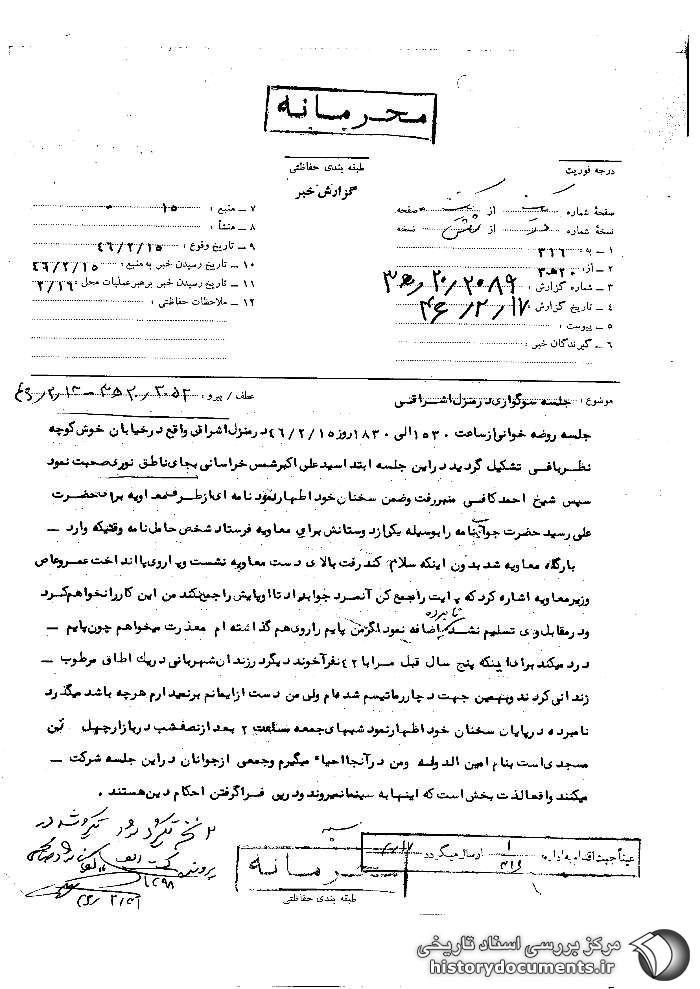 محرمانه
درجه فوریت
طبقه بندی حفاظتی
گزارش خبر
صفحهٔ شماره یک از یک صفحه
نسخهٔ شماره از شش نسخه
۱ – به : ۳۱۶
۲ – از : ۳۵۲۰
۳ – شماره گزارش :
۴ – تاریخ گزارش : ۴۶/۲/۱۷
۵ – پیوست :
۶ – گیرندگان خبر :
۷ – منبع : ۱۵
۸ – منشأ :
۹ – تاریخ وقوع : ۴۶/۲/۱۵
۱۰ – تاریخ رسیدن خبر به منبع : ۴۶/۲/۱۵
۱۱ – تاریخ رسیدن خبر برهبر عملیات محل : ۲/۱۶
۱۲ – ملاحظات حفاظتی :
موضوع : جلسه سوگواری در منزل اشراقی
عطف / پیرو :
جلسه روضه خوانی از ساعت ۱۵۳۰ الی ۱۸۳۰ روز ۴۶/۲/۱۵ در منزل اشراقی واقع در خیابان خوش کوچه
نظر بافی تشکیل گردید در این جلسه ابتدا سید علی اکبر شمس خراسانی بجای ناطق نوری صحبت نمود
سپس شیخ احمد کافی منبر رفت وضمن سخنان خود اظهار نمود نامه ای از طرف معاویه برای حضرت
علی رسید حضرت جواب نامه را بوسیله یکی از دوستانش برای معاویه فرستاد شخص حامل نامه وقتیکه وارد –
بارگاه معاویه شد بدون اینکه سلام کند رفت بالای دست معاویه نشست وپا روی پا انداخت عمروعاص
وزیر معاویه اشاره کرد که پایت را جمع کن آنمرد جواب داد تا او پایش را جمع نکند من این کار را نخواهم کرد
ودر مقابل وی تسلیم نشد نامبرده اضافه نمود اگر من پایم را روی هم گذاشته ام معذرت میخواهم چون پایم –
درد میکند برای اینکه پنج سال قبل مرا با ۴۲ نفر آخوند دیگر در زندان شهربانی در یک اطاق مرطوب –
زندانی کردند وبهمین جهت دچار رماتیسم شده ام ولی من دست از ایمانم بر نمیدارم هرچه باشد میگذرد
نامبرده در پایان سخنان خود اظهار نمود شبهای جمعه ساعت ۲ بعد از نصفشب در بازار چهل تن
مسجدی است بنام امین الدوله ومن در آنجا احیاء میگیرم وجمعی از جوانان در این جلسه شرکت –
میکنند واقعا لذت بخش است که اینها به سینما نمیروند ودر پی فرا گرفتن احکام دین هستند .
عیناً جهت اقدام به اداره ۳۱۶ ارسال میگردد
محرمانه
طبقه بندی حفاظتی
مرکز بررسی اسناد تاریخی
historydocuments.ir